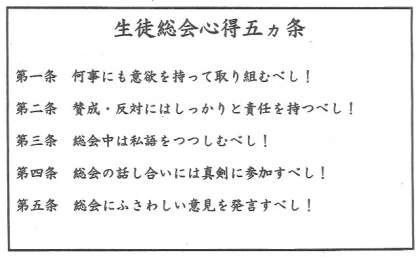 生徒総会心得五ヵ条
第一条 何事にも意欲を持って取り組むべし！
第二条 賛成・反対にはしっかりと責任を持つべし！
第三条 総会中は私語をつつしむべし！
第四条 総会の話し合いには真剣に参加すべし！
第五条 総会にふさわしい意見を発言すべし！